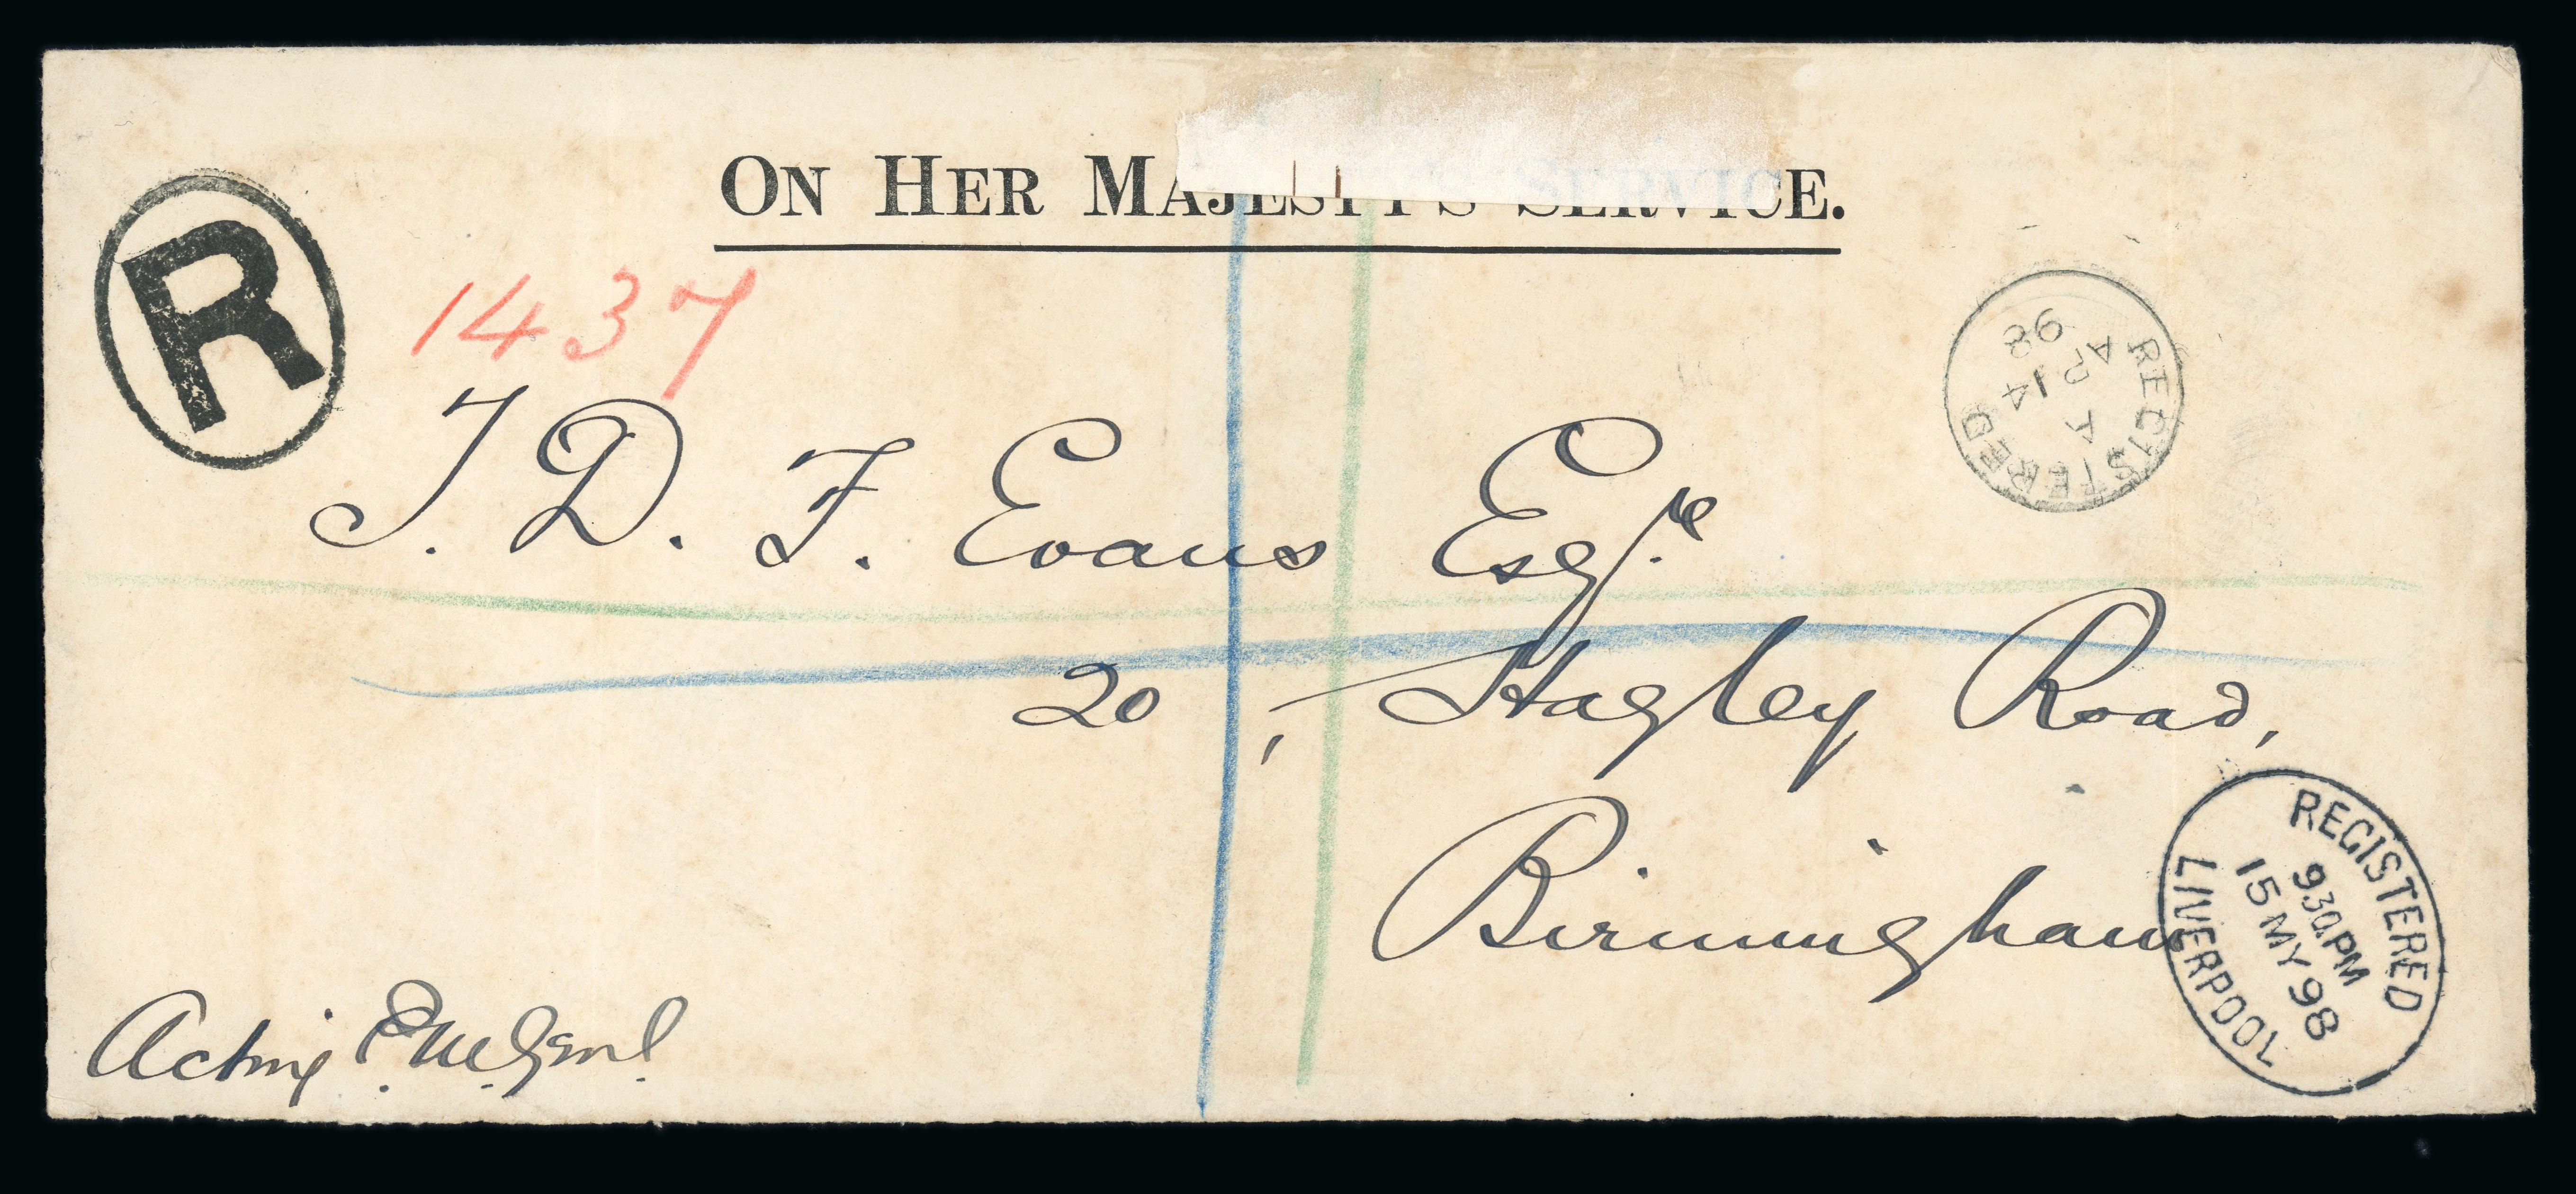 ON HER MAJESTY'S SERVICE.
R
1437
J. D. F. Evans Esqre
20, Hagley Road,
Birmingham
Acting P.M.Genl.
REGISTERED
A
14
98
REGISTERED
9 30.PM
15 MY 98
LIVERPOOL